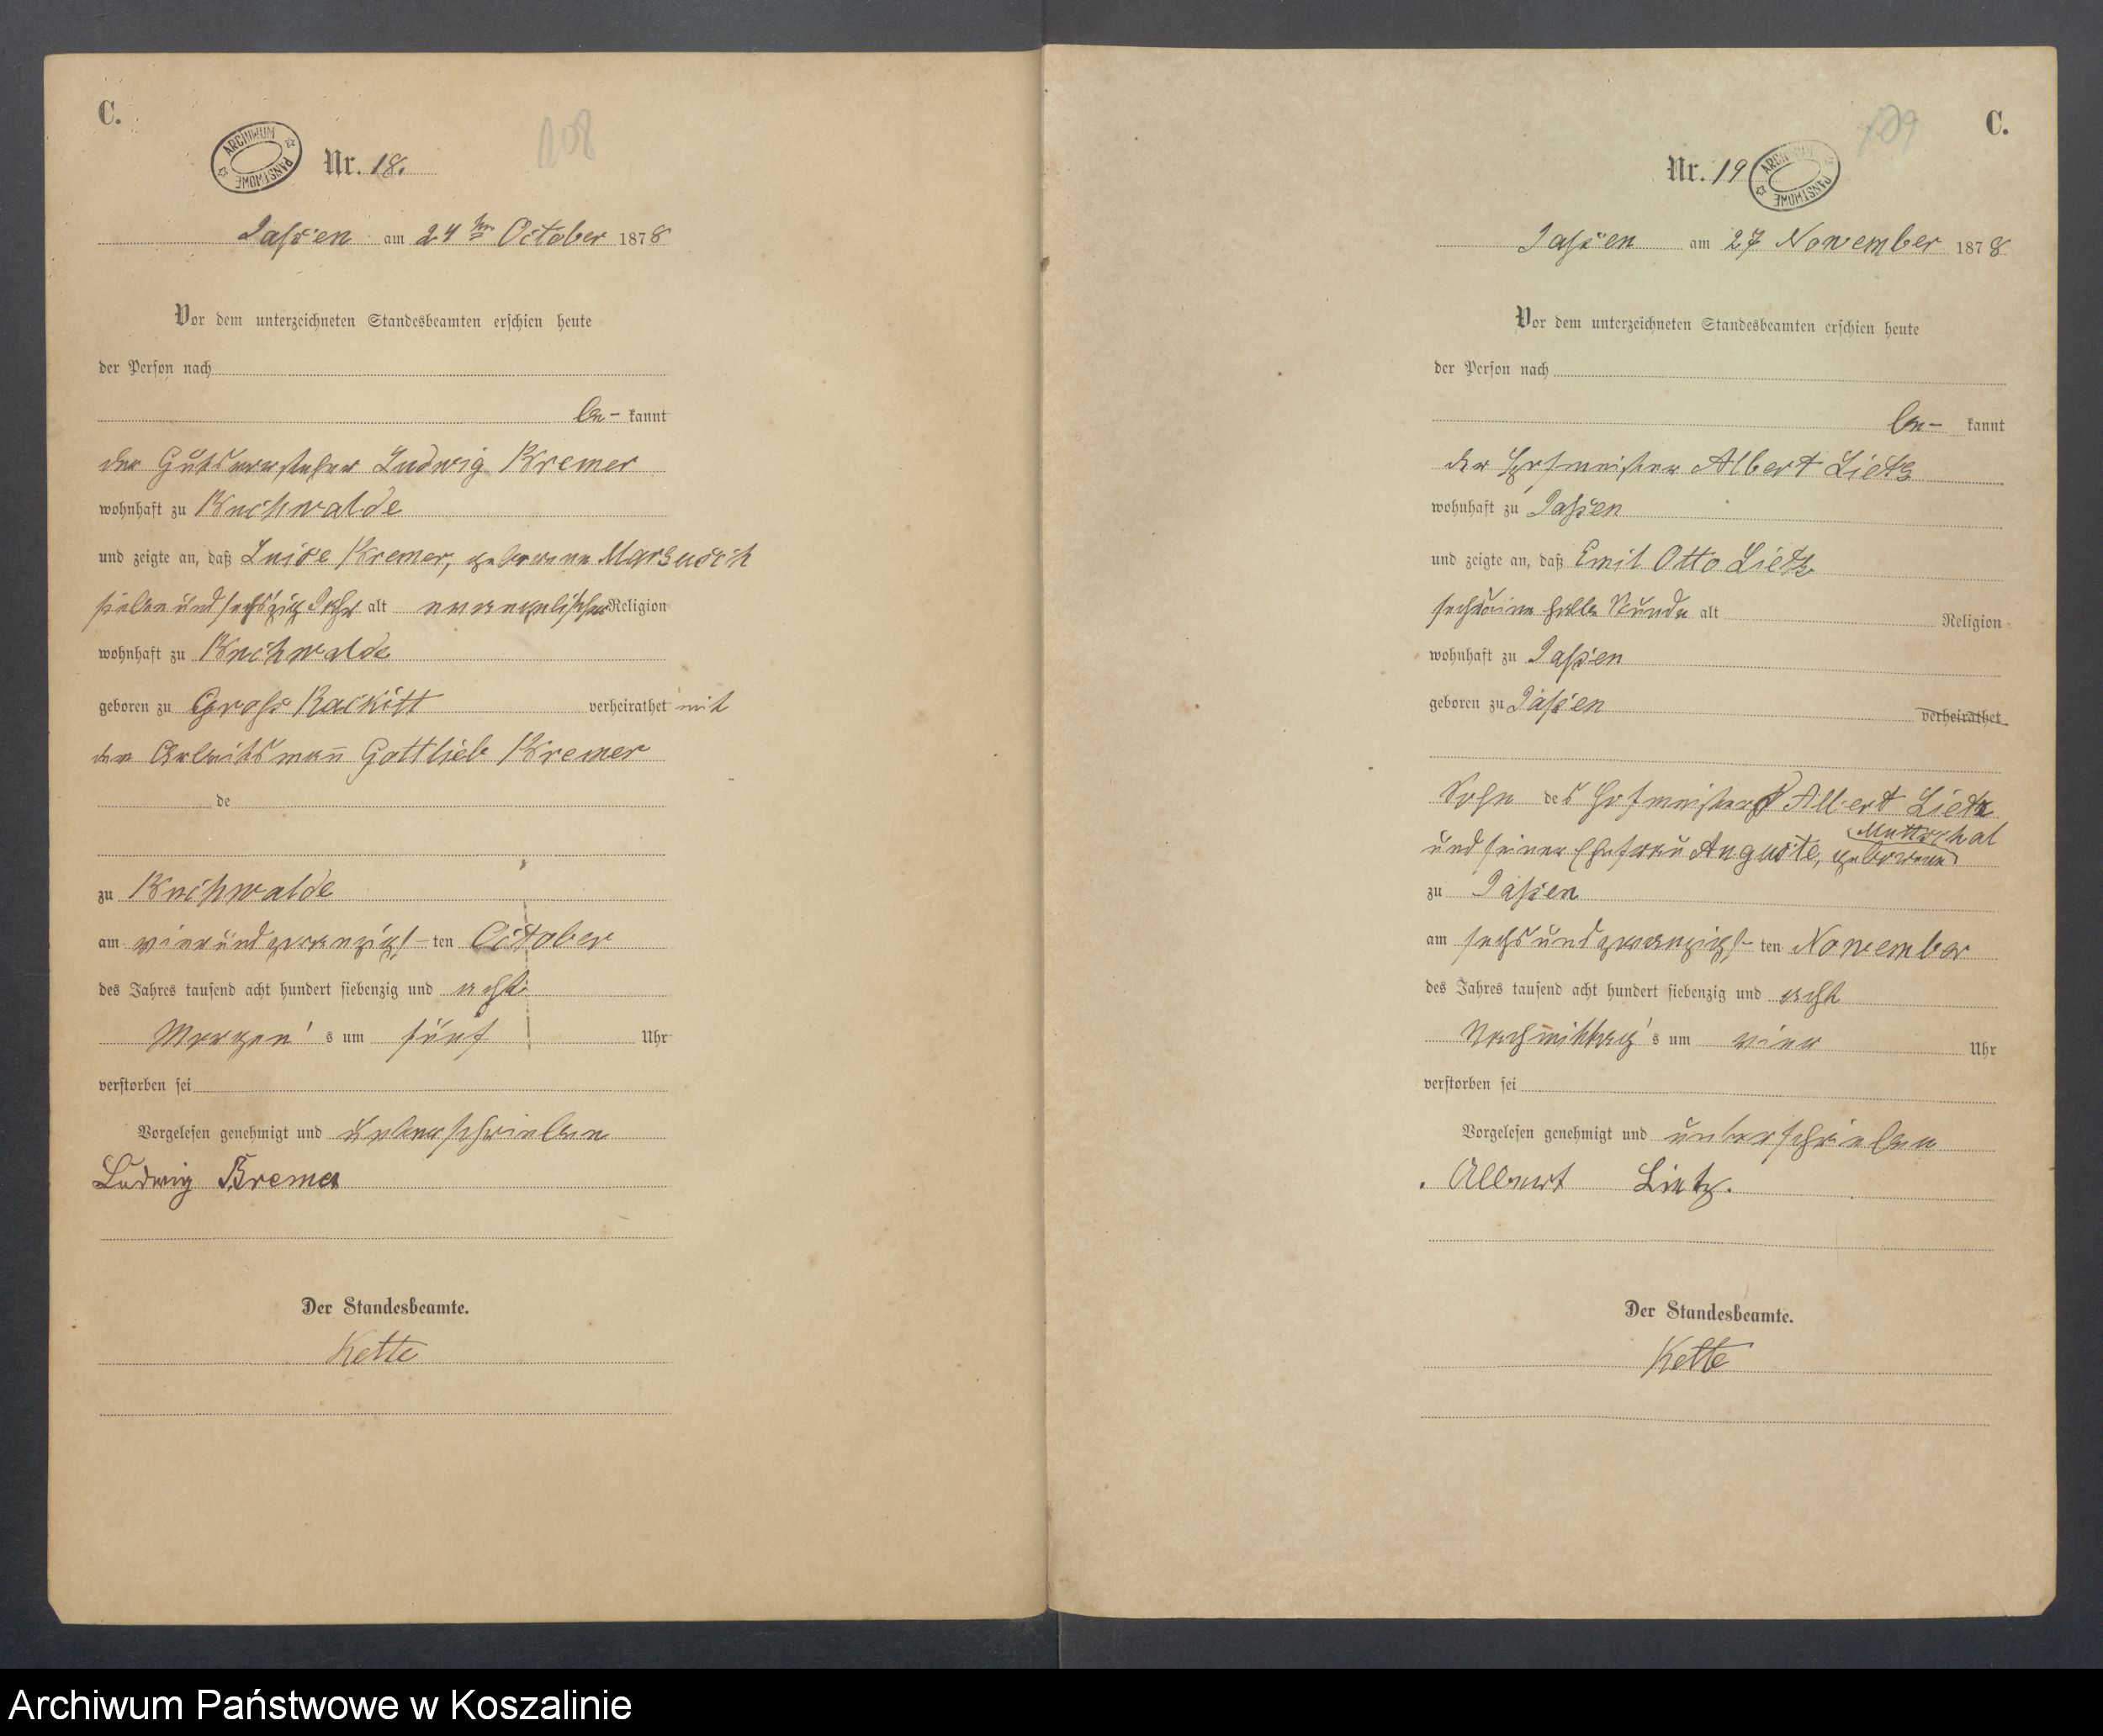 C.
108
ARCHIWUM PAŃSTWOWE
Nr. 18.
Jassen am 24ten October 1878
Vor dem unterzeichneten Standesbeamten erschien heute
der Person nach
be- kannt
der Gutsvorsteher Ludwig Kremer
wohnhaft zu Buchwalde
und zeigte an, daß Luise Kremer, geborene
sieben und sechszig Jahr alt evangelischer Religion
wohnhaft zu Buchwalde
geboren zu Gross Rackitt verheirathet mit
dem Arbeitsmann Gottlieb Kremer
de
zu Buchwalde
am vier und zwanzigst-ten October
des Jahres tausend acht hundert siebenzig und acht
Morgen's um fünf Uhr
verstorben sei
Vorgelesen genehmigt und unterschrieben
Ludwig
Der Standesbeamte.
Kette
C.
109
Nr. 19
ARCHIWUM PAŃSTWOWE
Jassen am 27 November 1878
Vor dem unterzeichneten Standesbeamten erschien heute
der Person nach
be- kannt
der Hofmeister Albert Lietz
wohnhaft zu Jassen
und zeigte an, daß Emil Otto Lietz
halbe Stunde alt Religion
wohnhaft zu Jassen
geboren zu Jassen verheirathet
Sohn des Hofmeisters Albert Lietz
und seiner Ehefrau Auguste, geborene
zu Jassen
am sechs und zwanzigst-ten November
des Jahres tausend acht hundert siebenzig und acht
Nachmittag's um vier Uhr
verstorben sei
Vorgelesen genehmigt und unterschrieben
Albert Lietz.
Der Standesbeamte.
Kette
Archiwum Państwowe w Koszalinie